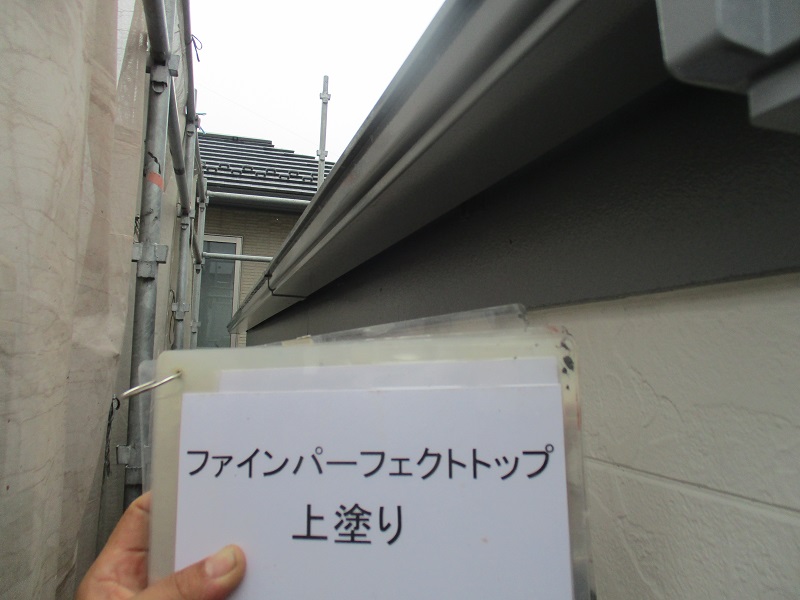 ファインパーフェクトトップ
上塗り